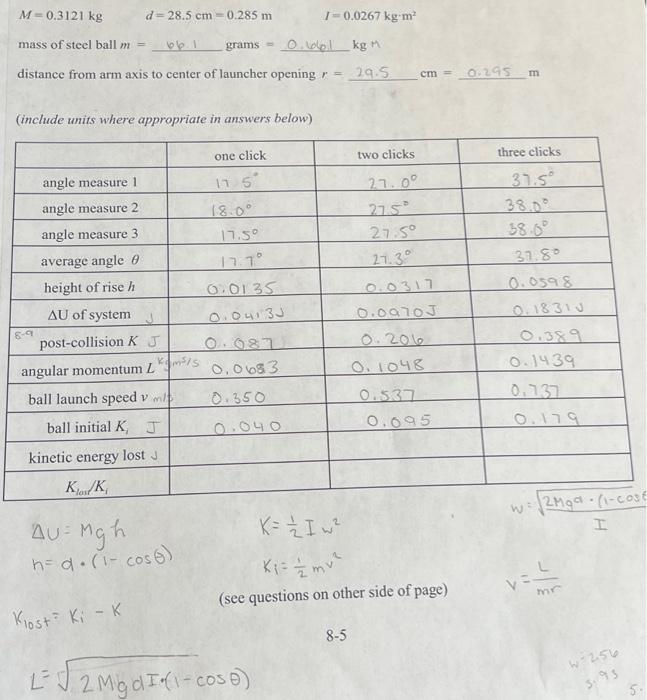 M = 0.3121 kg d = 28.5 cm = 0.285 m I = 0.0267 kg·m²
mass of steel ball m = 661 grams = 0.661 kg m
distance from arm axis to center of launcher opening r = 29.5 cm = 0.295 m
(include units where appropriate in answers below)
one click two clicks three clicks
angle measure 1 17.5° 27.0° 37.5°
angle measure 2 18.0° 27.5° 38.0°
angle measure 3 17.5° 27.5° 38.0°
average angle θ 17.7° 27.3° 37.8°
height of rise h 0.0135 0.0317 0.0598
ΔU of system J 0.0413J 0.0970J 0.1831J
8-9 post-collision K J 0.087 0.206 0.389
angular momentum L kgm²/s 0.0683 0.1048 0.1439
ball launch speed v m/s 0.350 0.537 0.737
ball initial Kᵢ J 0.040 0.095 0.179
kinetic energy lost J
Klost/Kᵢ
ΔU = Mgh K = ½ I w² w = √2Mgd·(1-cosθ
I
h = d·(1- cosθ) Ki = ½ mv² v = L/mr
(see questions on other side of page)
Klost = Ki - K
8-5
w=2.56
3.93
5.
L = √2MgdI·(1-cosθ)